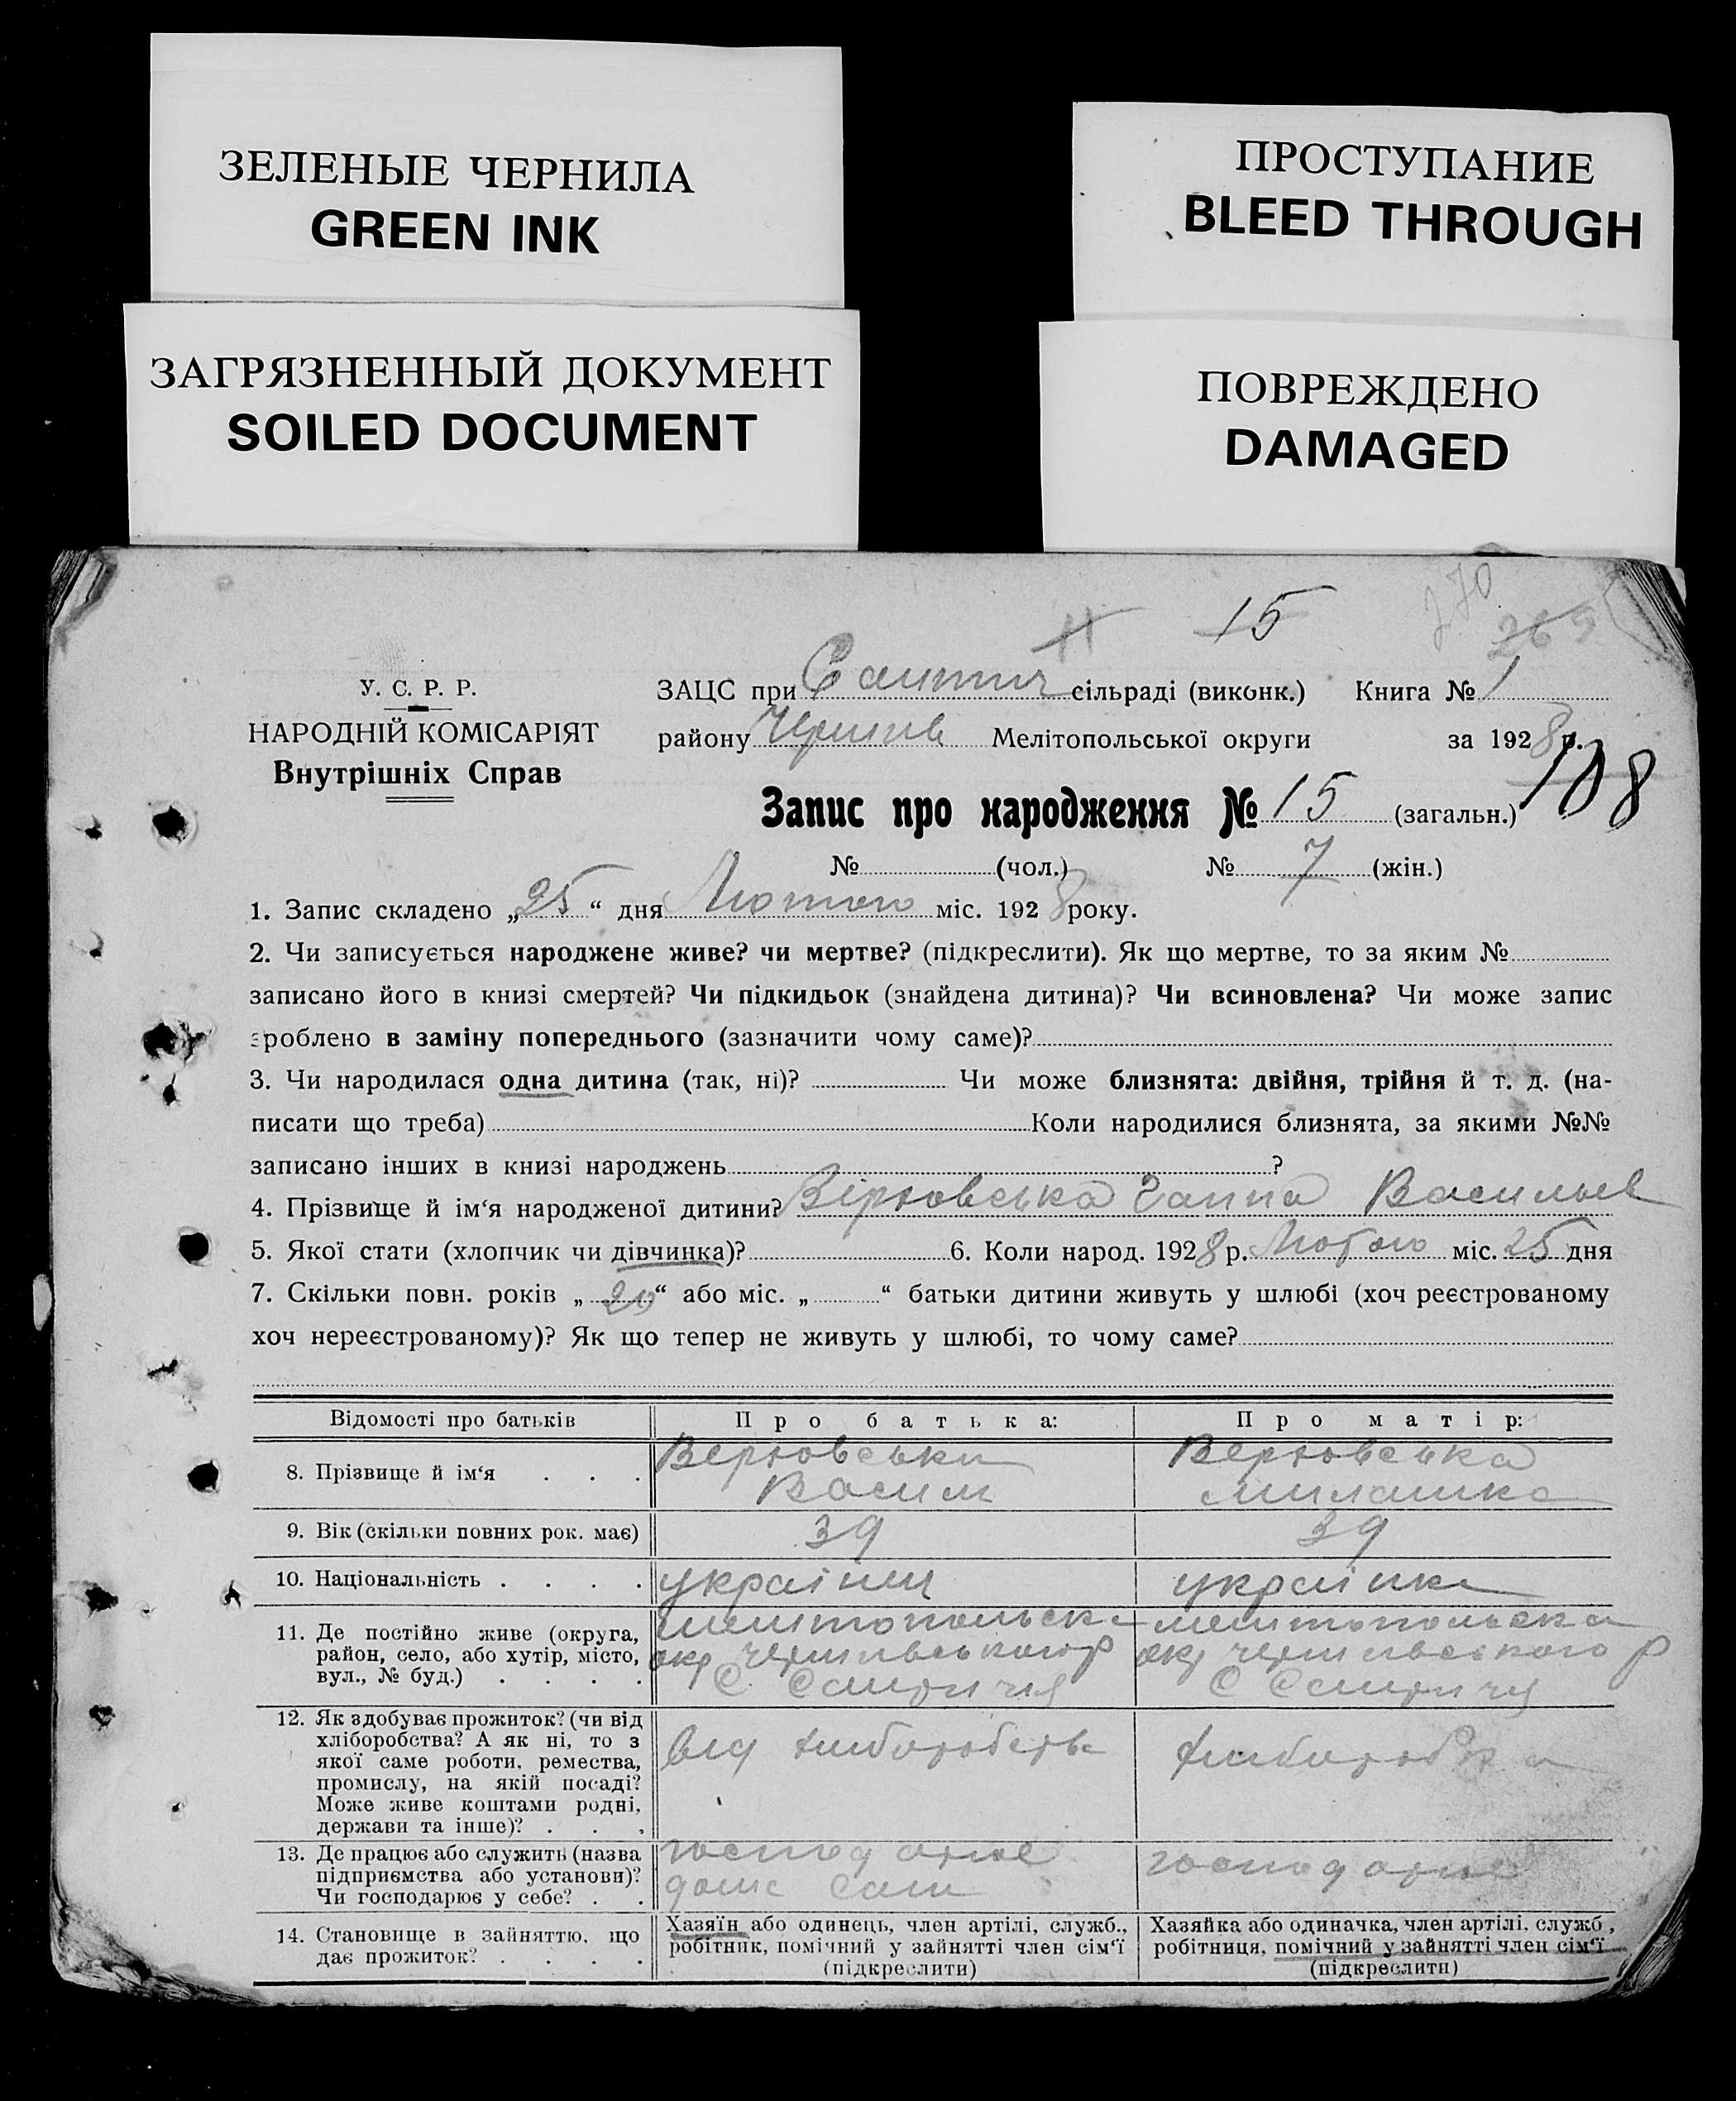 ЗЕЛЕНЫЕ ЧЕРНИЛА
GREEN INK
ПРОСТУПАНИЕ
BLEED THROUGH
ЗАГРЯЗНЕННЫЙ ДОКУМЕНТ
SOILED DOCUMENT
ПОВРЕЖДЕНО
DAMAGED
270
11 15 269
У. С. Р. Р.
НАРОДНІЙ КОМІСАРІЯТ
Внутрішніх Справ
ЗАЦС при сільраді (виконк.) Книга № 1
району Мелітопольської округи за 1928 р.
108
Запис про народження № 15 (загальн.)
№ (чол.) № 7 (жін.)
1. Запис складено „25“ дня Лютого міс. 1928 року.
2. Чи записується народжене живе? чи мертве? (підкреслити). Як що мертве, то за яким №
записано його в книзі смертей? Чи підкидьок (знайдена дитина)? Чи всиновлена? Чи може запис
зроблено в заміну попереднього (зазначити чому саме)?
3. Чи народилася одна дитина (так, ні)? Чи може близнята: двійня, трійня й т. д. (на-
писати що треба) Коли народилися близнята, за якими №№
записано інших в книзі народжень ?
4. Прізвище й ім‘я народженої дитини? Вірховська Ганна Васильев
5. Якої стати (хлопчик чи дівчинка)? 6. Коли народ. 1928 р. Лютого міс. 25 дня
7. Скільки повн. років „20“ або міс. „ “ батьки дитини живуть у шлюбі (хоч реєстрованому
хоч нереєстрованому)? Як що тепер не живуть у шлюбі, то чому саме?
Відомості про батьків Про батька: Про матір:
8. Прізвище й ім‘я . . .
Верховськи
Васил
Верховська
Милашка
9. Вік (скільки повних рок. має) 39 39
10. Національність . . . . україниц українка
11. Де постійно живе (округа,
район, село, або хутір, місто,
вул., № буд.) . . . .
мелитопольска
окр р
С
мелитопольска
окр р
С
12. Як здобуває прожиток? (чи від
хліборобства? А як ні, то з
якої саме роботи, ремества,
промислу, на якій посаді?
Може живе коштами родні,
держави та інше)? . . .
від хлиборобства
хлиборобка
13. Де працює або служить (назва
підприємства або установи)?
Чи господарює у себе? . .
господарює
дома сам
господарює
14. Становище в зайняттю, що
дає прожиток? . . . .
Хазяїн або одинець, член артілі, служб.,
робітник, помічний у зайнятті член сім‘ї
(підкреслити)
Хазяйка або одиначка, член артілі, служб.,
робітниця, помічний у зайнятті член сім‘ї
(підкреслити)